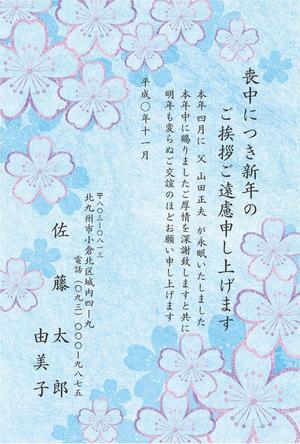 喪中につき新年の
ご挨拶ご遠慮申し上げます
本年四月に 父 山田正夫 が 永眠いたしました
本年中に賜りましたご厚情を深謝致しますと共に
明年も変らぬご交誼のほどお願い申し上げます
平成〇年十一月
〒八〇三―〇八一三
北九州市小倉北区城内四―九
電話(〇九三)〇〇〇―九八七五
佐藤 太郎
由美子